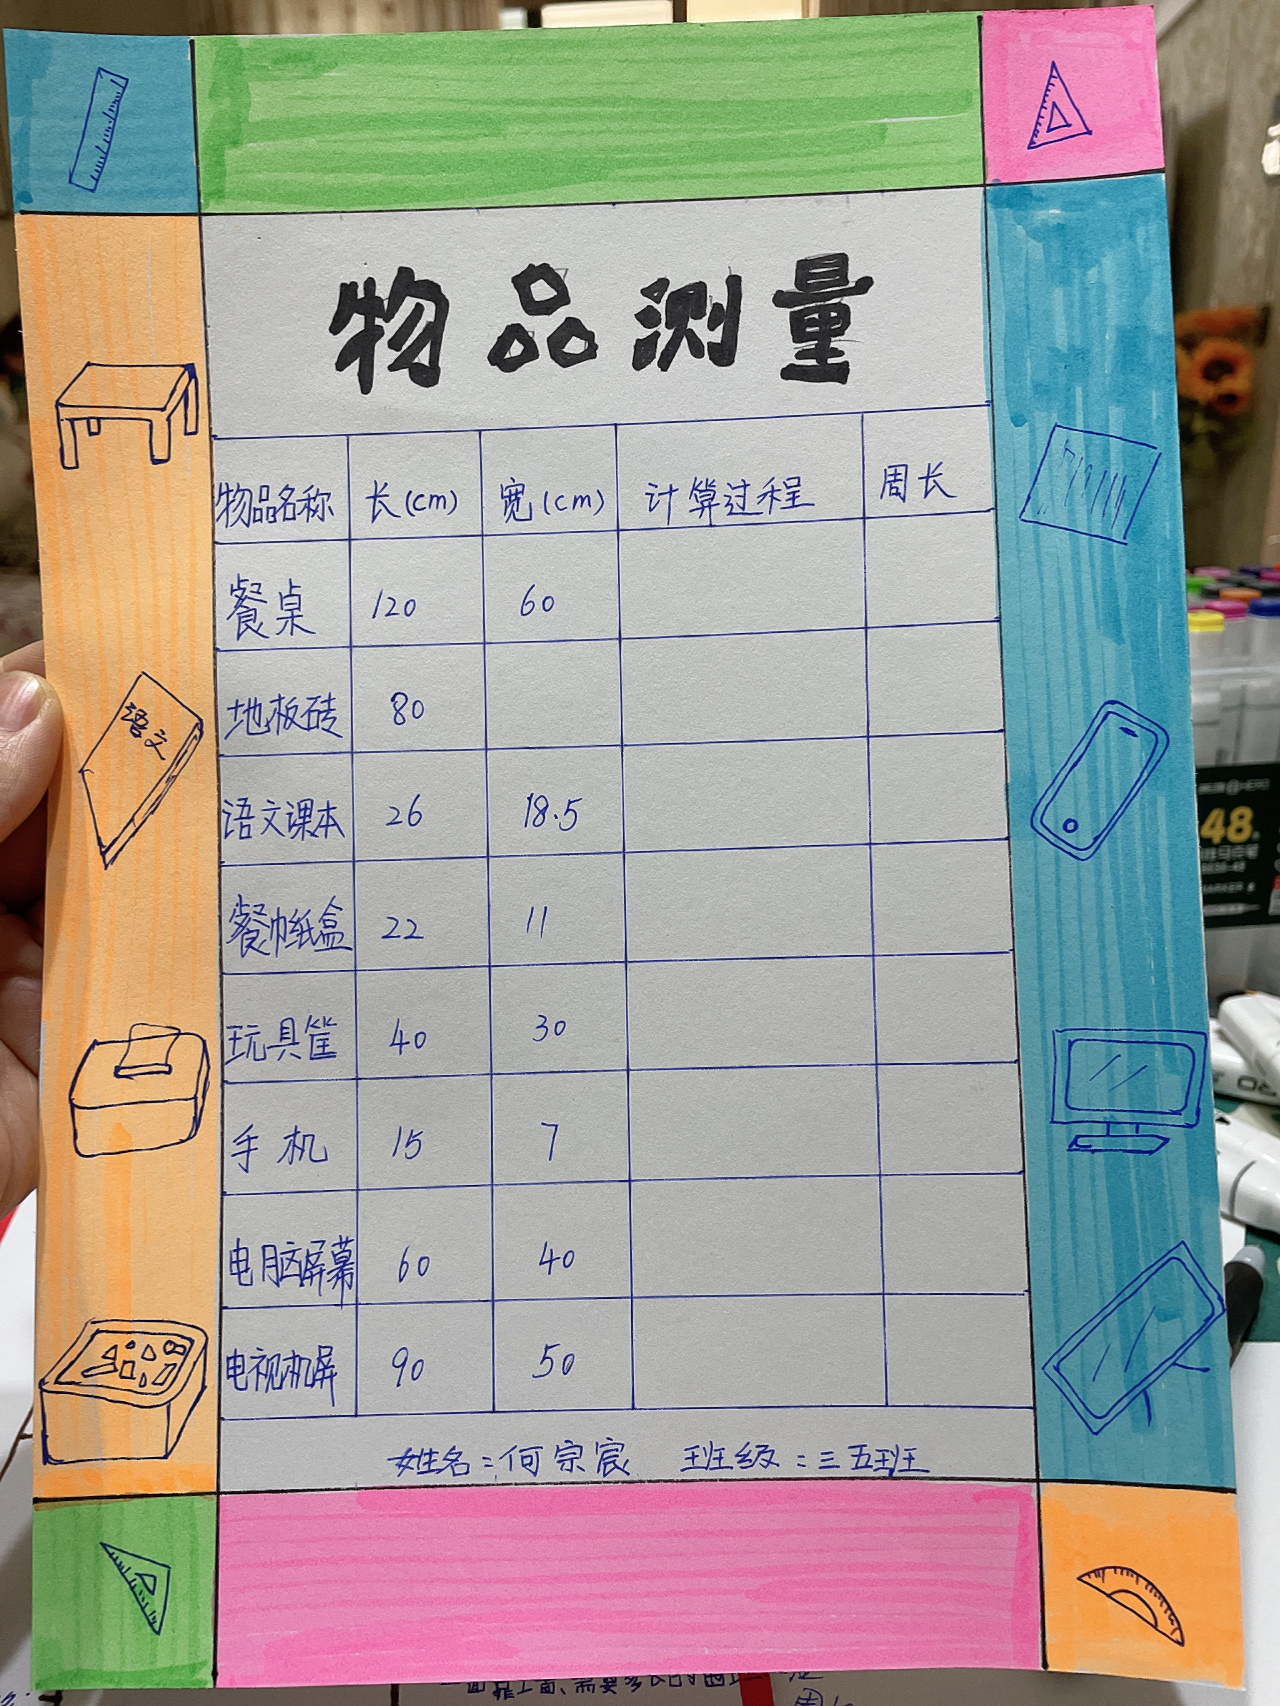 物品测量
物品名称 长(cm) 宽(cm) 计算过程 周长
餐桌 120 60
地板砖 80
语文课本 26 18.5
餐巾纸盒 22 11
玩具筐 40 30
手机 15 7
电脑屏幕 60 40
电视机屏 90 50
姓名：何宗宸 班级：三五班
语文
48